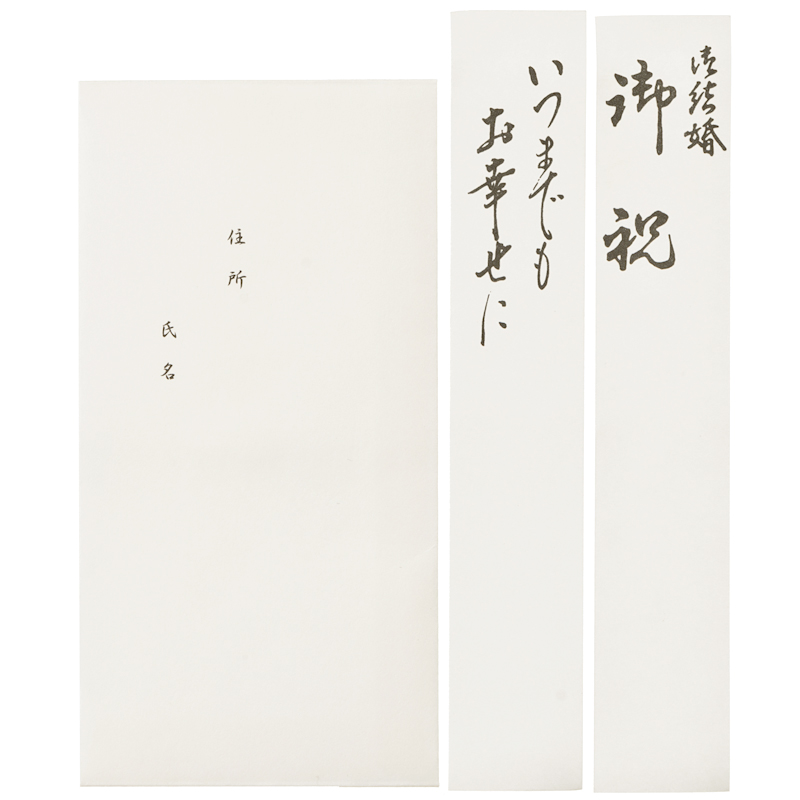 御結婚
御祝
いつまでも
お幸せに
住所
氏名